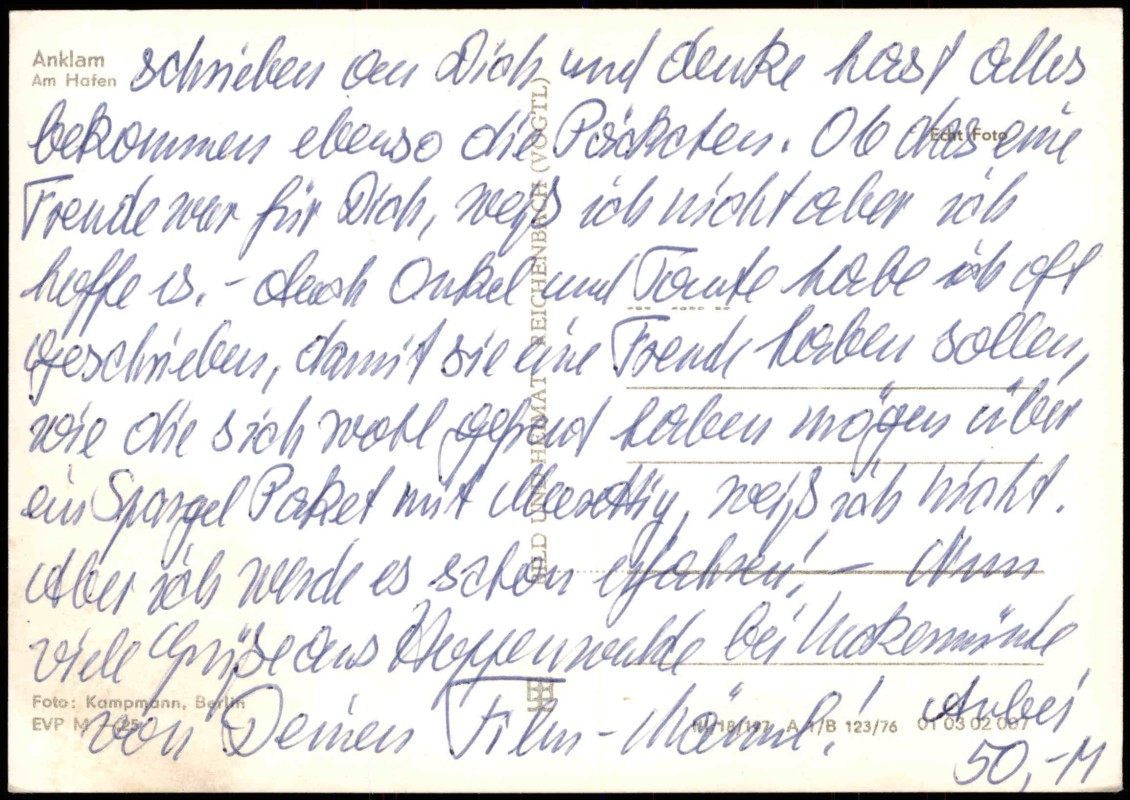 Anklam
Am Hafen
schrieben an Dich und denke hast alles
bekommen ebenso die Päckchen. Ob das eine
Echt Foto
Freude war für Dich, weiß ich nicht aber ich
hoffe es. - Auch Onkel und Tante habe ich oft
geschrieben, damit sie eine Freude haben sollen,
wie die sich wohl gefreut haben mögen über
ein Spargel Paket mit, weiß ich nicht.
Aber ich werde es schon erfahren! - Nun
viele Grüße aus Hoppenwalde bei Ueckermünde
von Deinen Film-Männl! Anbei
50,-M
BILD UND HEIMAT REICHENBACH (VOGTL)
Foto: Kampmann, Berlin
EVP M
A 1/B 123/76 01 03 02 007